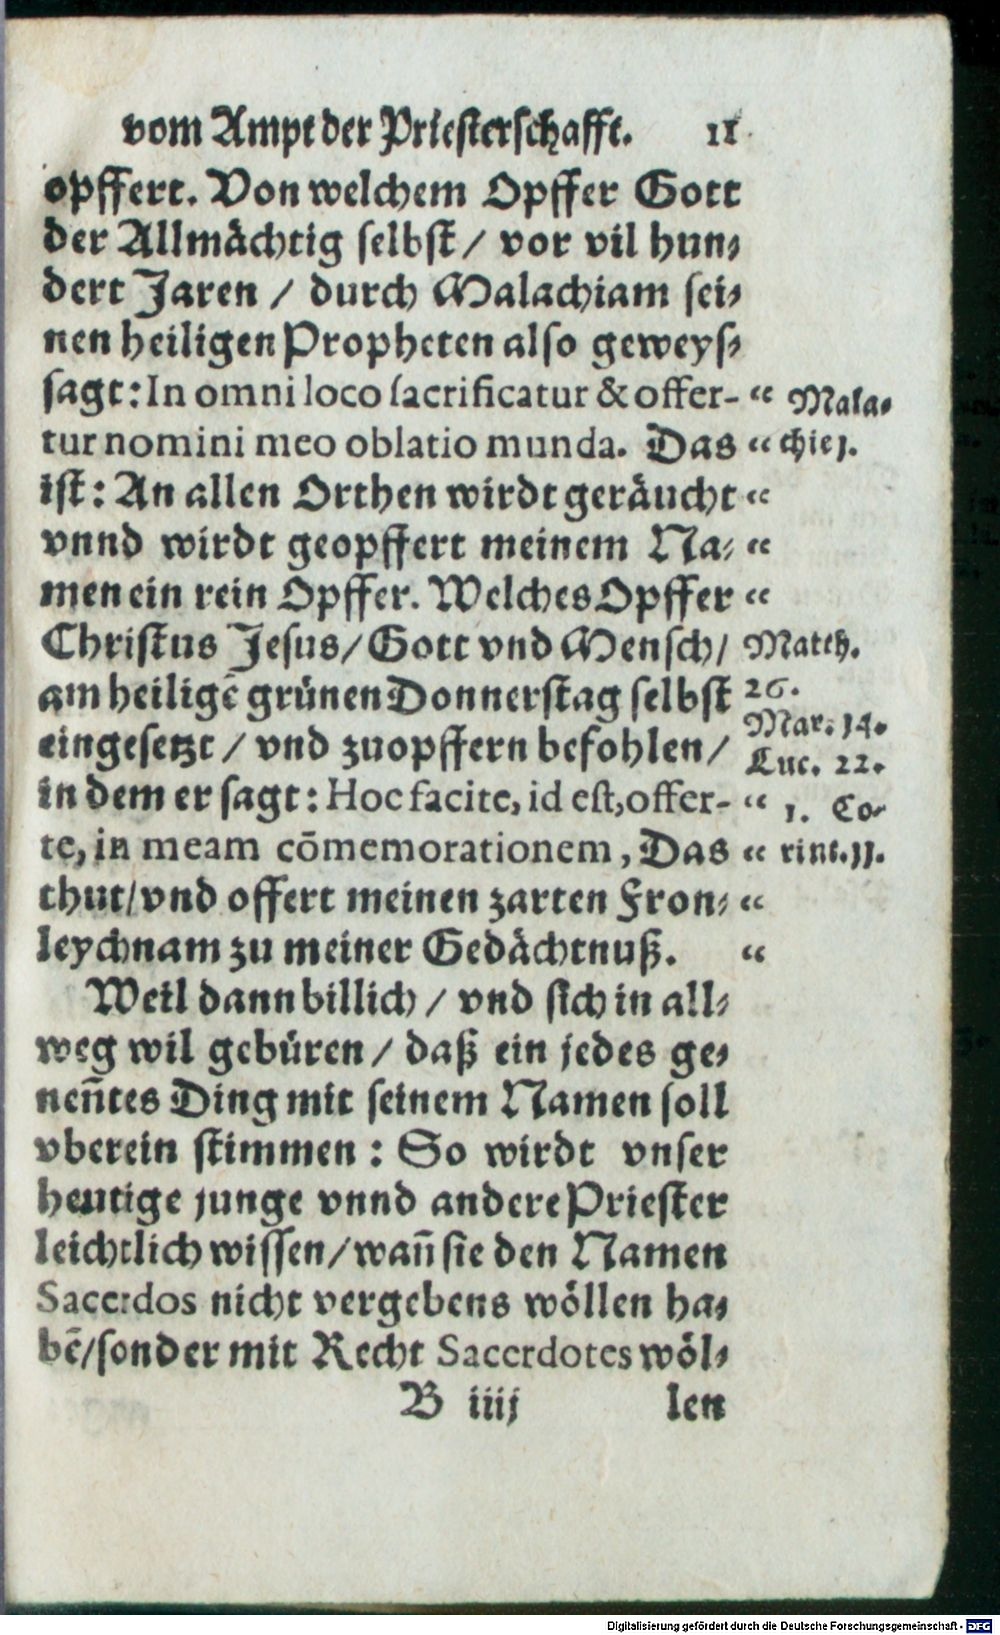 vom Ampt der Priesterschafft. 11
opffert. Von welchem Opffer Gott
der Allmächtig selbst / vor vil hun⸗
dert Jaren / durch Malachiam sei⸗
nen heiligen Propheten also geweys⸗
sagt: In omni loco sacrificatur & offer- “ Mala⸗
tur nomini meo oblatio munda. Das “ chie j.
ist: An allen Orthen wirdt geräucht “
vnnd wirdt geopffert meinem Na⸗ “
men ein rein Opffer. Welches Opffer “
Christus Jesus / Gott vnd Mensch / Matth.
am heiligē grünen Donnerstag selbst 26.
eingesetzt / vnd zuopffern befohlen / Mar. 14.
Luc. 22.
in dem er sagt: Hoc facite, id est, offer- “ 1. Co⸗
te, in meam cōmemorationem, Das “ rint. 11.
thut / vnd offert meinen zarten Fron⸗ “
leychnam zu meiner Gedächtnuß. “
Weil dann billich / vnd sich in all⸗
weg wil gebüren / daß ein jedes ge⸗
nen̄tes Ding mit seinem Namen soll
vberein stimmen : So wirdt vnser
heutige junge vnnd andere Priester
leichtlich wissen / wan̄ sie den Namen
Sacerdos nicht vergebens wöllen ha⸗
bē / sonder mit Recht Sacerdotes wöl⸗
B iiij len
Digitalisierung gefördert durch die Deutsche Forschungsgemeinschaft - DFG